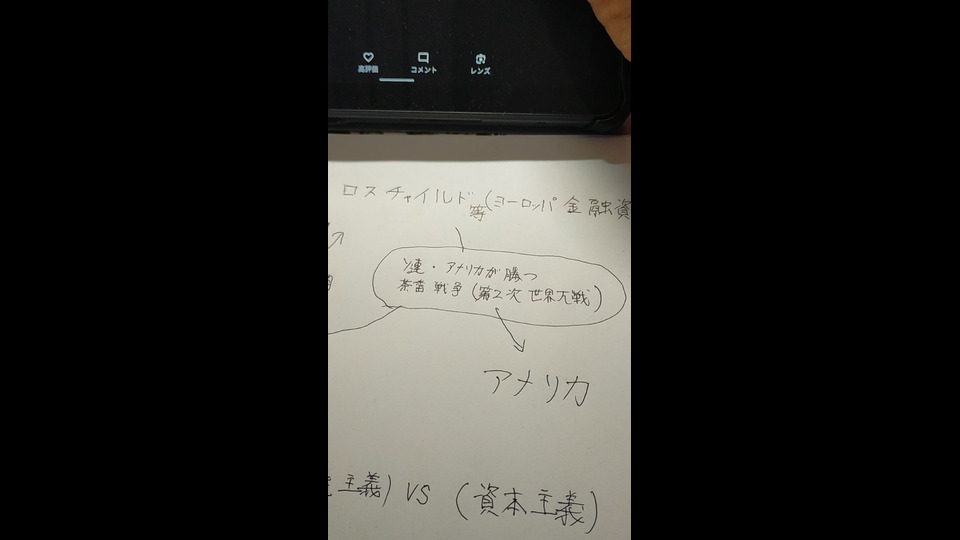 高評価 コメント レンズ
ロスチャイルド等(ヨーロッパ 金融資
ソ連・アメリカが勝つ
茶番 戦争 (第2次 世界大戦)
アメリカ
主義) VS (資本主義)